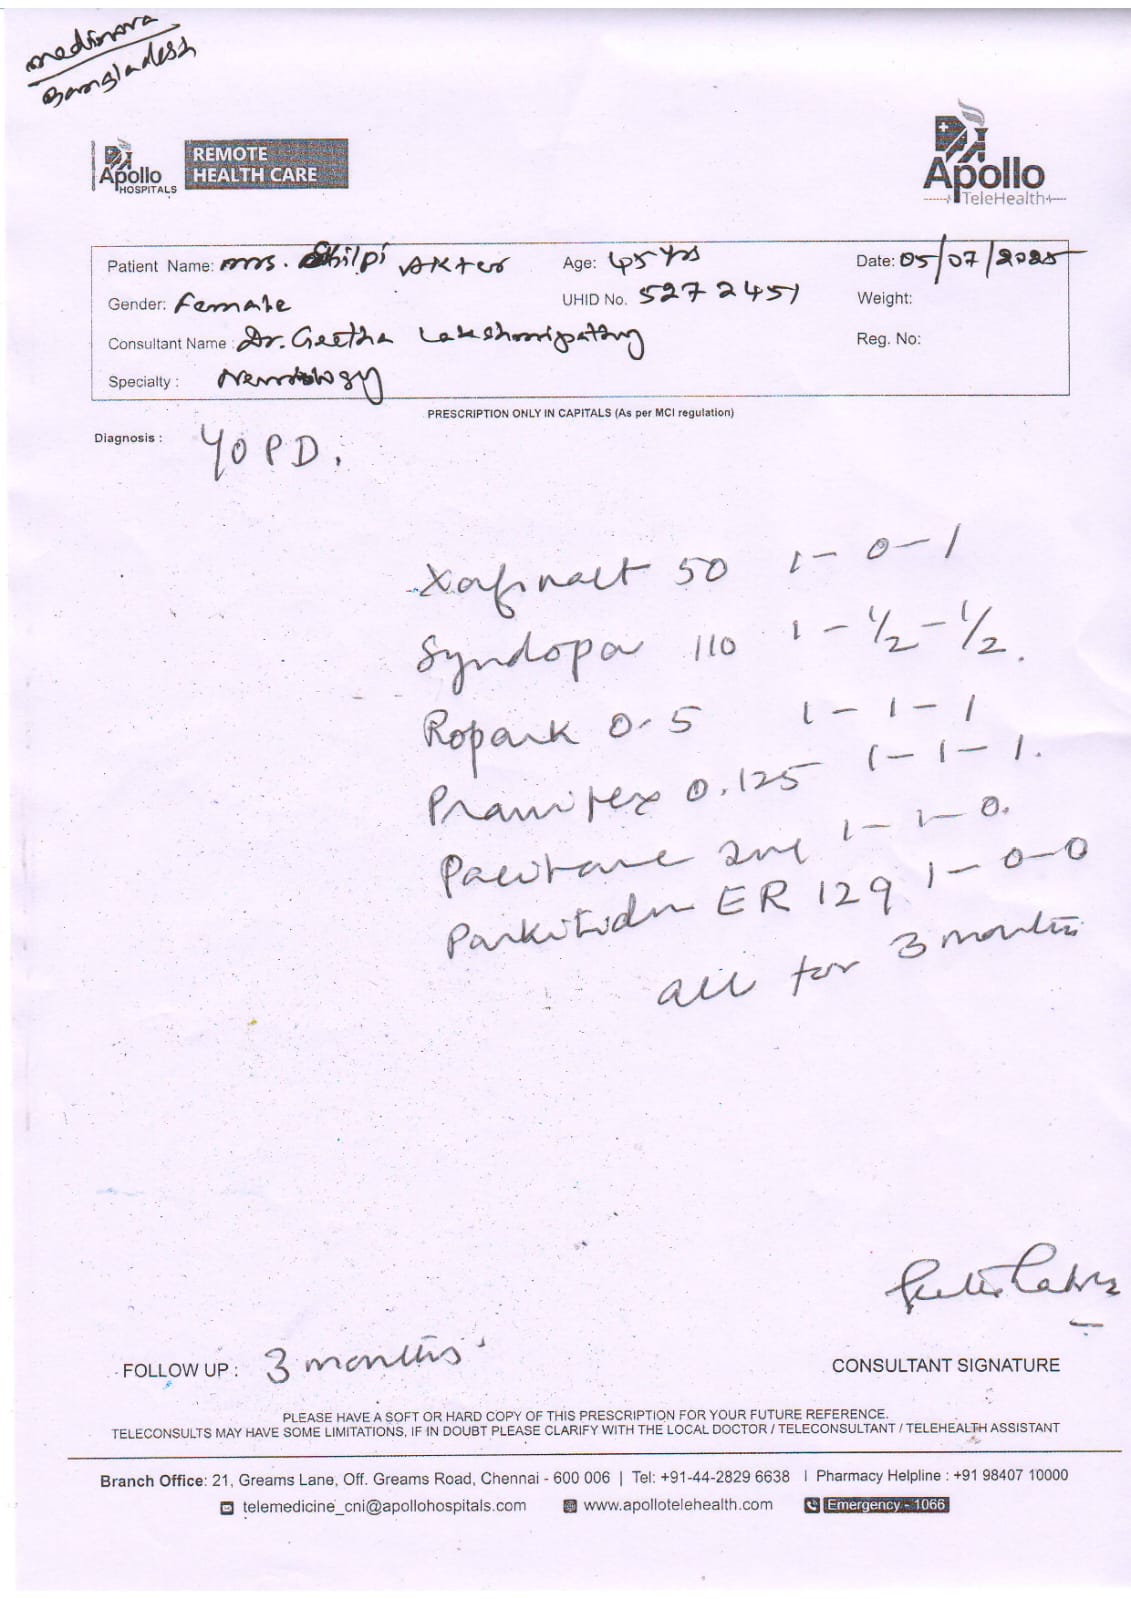 medinova
Bangladesh
Apollo
HOSPITALS
REMOTE
HEALTH CARE
Apollo
TeleHealth
Patient Name: Mrs. Shilpi Akter Age: 45 Yrs Date: 05/07/2025
Gender: Female UHID No. 5272451 Weight:
Consultant Name: Dr. Geetha Lakshmipathy Reg. No:
Specialty: Neurology
PRESCRIPTION ONLY IN CAPITALS (As per MCI regulation)
Diagnosis: YOPD.
Xafinact 50 1-0-1
Syndopa 110 1-1/2-1/2.
Ropark 0.5 1-1-1
Pramipex 0.125 1-1-1.
Pacitane 2mg 1-1-0.
Parkitidin ER 129 1-0-0
all for 3 months
FOLLOW UP: 3 months
CONSULTANT SIGNATURE
PLEASE HAVE A SOFT OR HARD COPY OF THIS PRESCRIPTION FOR YOUR FUTURE REFERENCE.
TELECONSULTS MAY HAVE SOME LIMITATIONS, IF IN DOUBT PLEASE CLARIFY WITH THE LOCAL DOCTOR / TELECONSULTANT / TELEHEALTH ASSISTANT
Branch Office: 21, Greams Lane, Off. Greams Road, Chennai - 600 006 | Tel: +91-44-2829 6638 | Pharmacy Helpline : +91 98407 10000
telemedicine_cni@apollohospitals.com www.apollotelehealth.com Emergency - 1066